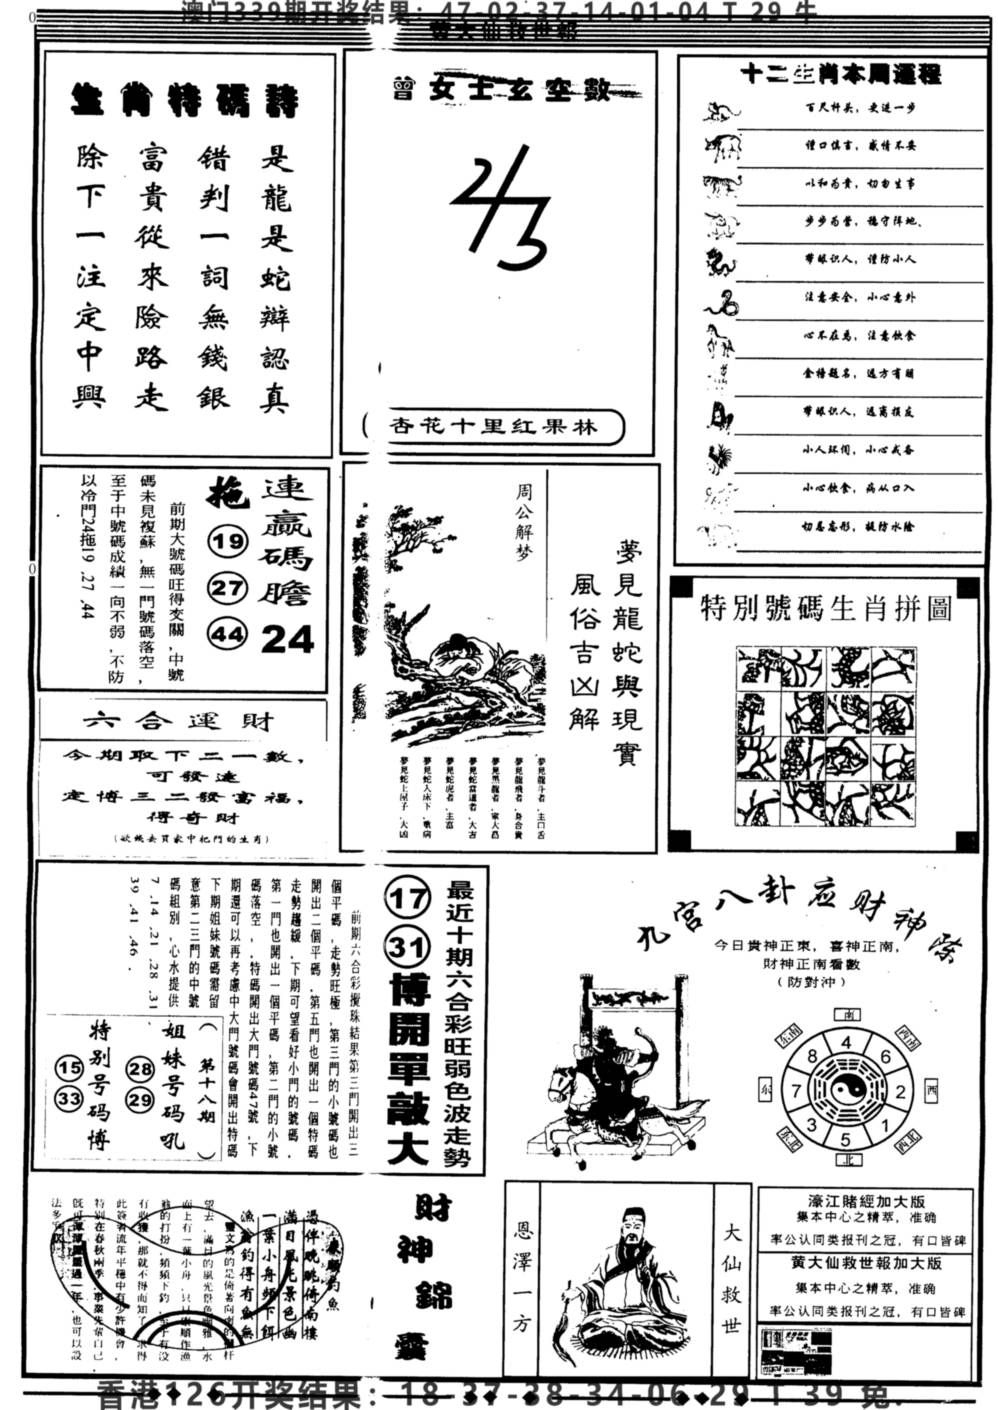 澳门339期开奖结果：47-02-37-14-01-04 T 29 牛
黄大仙救世報
生肖特碼詩
是龍是蛇辯認真
错判一詞無錢銀
富貴從來險路走
除下一注定中興
曾女士玄空數
2/3
杏花十里红果林
十二生肖本周運程
百尺杆头，更进一步
谨口慎言，感情不妥
以和为贵，切勿生事
步步为营，稳守阵地、
带眼识人，谨防小人
注意安全，小心意外
心不在焉，注意饮食
金榜题名，远方有朋
带眼识人，远离损友
小人环伺，小心戒备
小心饮食，病从口入
切忌忘形，提防水险
連贏碼膽 24
拖 19 27 44
前期大號碼旺得交關，中號
碼未見複蘇，無一門號碼落空，
至于中號碼成績一向不弱，不防
以冷門24拖19 .27 .44
周公解梦
夢見龍蛇與現實
風俗吉凶解
夢見龍斗者，主口舌
夢見龍飛者，身合貴
夢見黑龍者，家大昌
夢見蛇當道者，大吉
夢見蛇虎者，主富
夢見蛇入床下，重病
夢見蛇上屋子，大凶
特別號碼生肖拼圖
六合運財
今期取下二一數，
可發達
走博三二發富福，
傳奇財
最近十期六合彩旺弱色波走勢
17 31 博開單敲大
前期六合彩攪珠結果第三門開出三
個平碼，走勢旺極，第三門的小號碼也
開出二個平碼，第五門也開出一個特碼
走勢趨緩，下期可望看好小門的號碼，
第一門也開出一個平碼，第二門的小號
碼落空，特碼開出大門號碼47號，下
期還可以再考慮中大門號碼會開出特碼
下期姐妹號碼需留
意第二三門的中號
碼組別，心水提供
7 .14 .21 .28 .31
39 .41 .46 .
（第十八期）
姐妹号码吼
28 29
特别号码博
15 33
九宮八卦应财神际
今日貴神正東，喜神正南，
財神正南看數
（防對沖）
南
东南
西南
东
西
东北
西北
北
4
8 6
7 2
3 1
5
財神錦囊
憑伴晚眺倚南樓
滿目風光景色幽
一葉小舟頻下餌
漁翁釣得有魚無
恩澤一方
大仙救世
濠江賭經加大版
集本中心之精萃，准确
率公认同类报刊之冠，有口皆碑
黄大仙救世報加大版
集本中心之精萃，准确
率公认同类报刊之冠，有口皆碑
香港126开奖结果：18-37-38-34-06-29 T 39 兔.